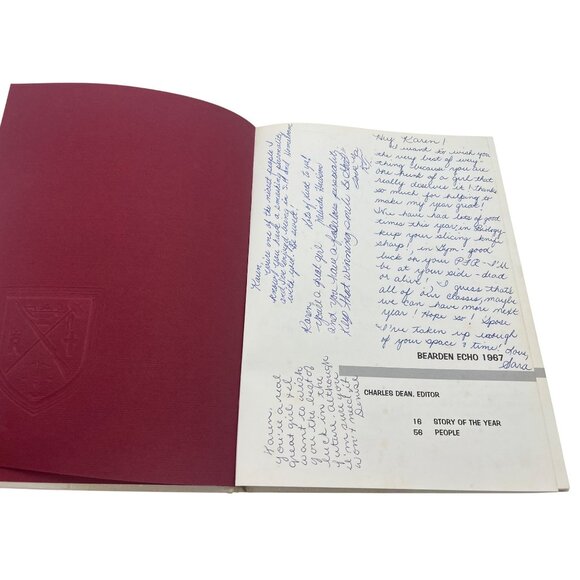 Hey Karen!
I want to wish you
the very best of every-
thing because you are
one hunk of a girl that
really deserves it! Thanks
so much for helping to
make my year great!
We have had lots of good
times this year, in Biology
keep your slicing knife
sharp!, in Gym - good
luck on your P.F.R. - I'll
be at your side - dead
or alive! I guess that's
all of our classes, maybe
we can have more next
year! Hope so! Spose
I've taken up enough
of your space & time! Love,
Sara
Karen,
You're one of the nicest people I
know. You have a smashing personality
and
with
Karen,
You're a great girl
and you have a fabulous personality.
Keep that winning smile
Lots of luck to you!
Love Ya
BEARDEN ECHO 1967
CHARLES DEAN, EDITOR
16 STORY OF THE YEAR
56 PEOPLE
Karen,
You're a real
great girl & I
want to wish
you the best of
luck in the
future although
I'm sure you
won't need it
Denise